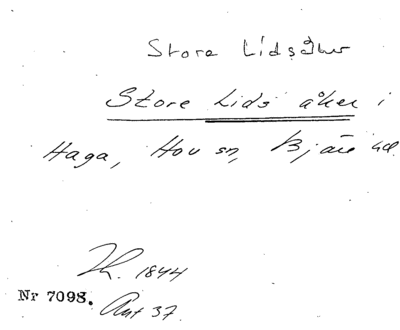 Store Lidsåker
Store Lids åker i
Haga, Hov sn, Bjäre hd.
Th. 1844
Nr 7098. Ant 37